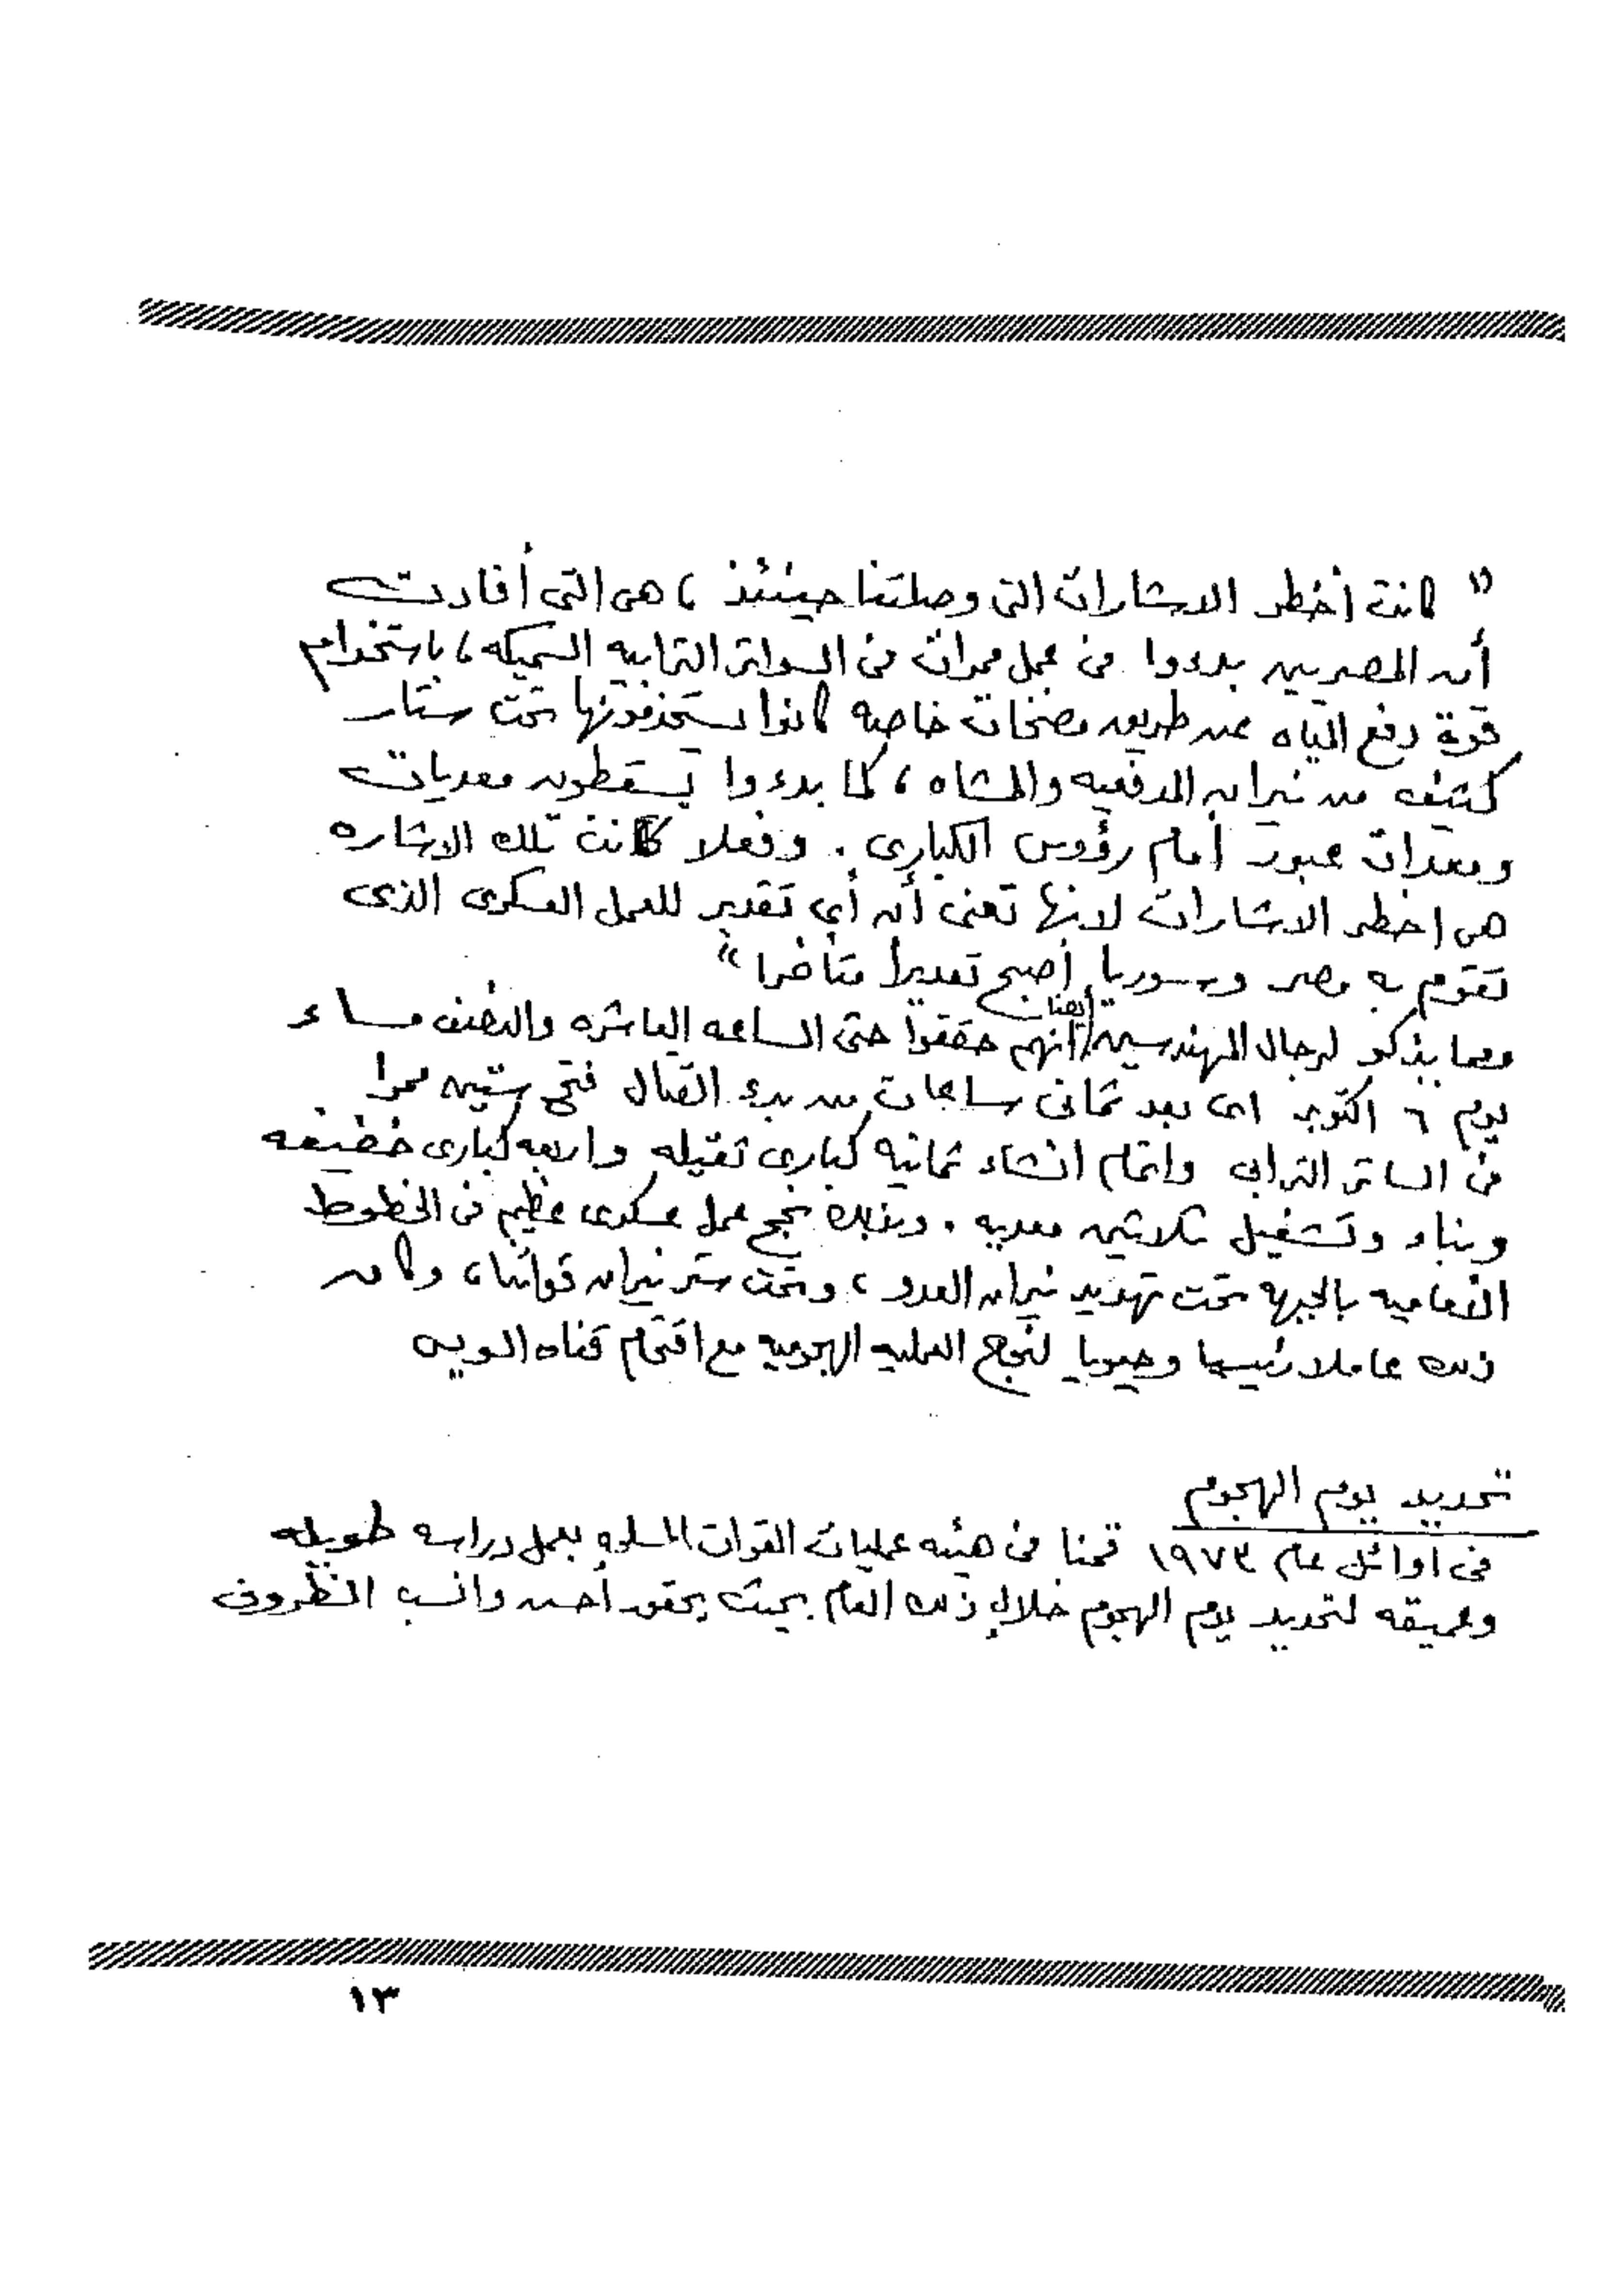 " كانت أخطر الاشارات التى وصلتنا حينئذ ، هى التى أفادت
أن المصريين بدءوا فى عمل ممرات فى السواتر الترابيه السميكه ، باستخدام
قوة دفع المياه عن طريق مضخات خاصه كانوا يستخدمونها تحت ستار
كثيف من نيران المدفعيه والمشاه ، كما بدءوا يسقطون معديات
ومعدات عبور أمام رؤوس الكبارى . وفعلا كانت تلك الاشاره
هى اخطر الاشارات لانها تعنى أن أي تقدير للعمل العسكرى الذى
تقوم به مصر وسوريا أصبح تقديرا متأخرا "
ومما يذكر لرجال المهندسين أيضا انهم حققوا حتى الساعه العاشره والنصف مساء
يوم ٦ اكتوبر اى بعد ثمانى ساعات من بدء القتال فتح ستين ممرا
فى الساتر الترابى واتمام انشاء ثمانيه كبارى ثقيله واربعه كبارى خفيفه
وبناء وتشغيل ثلاثين معديه . وبذلك نجح عمل عسكرى عظيم فى الخطوط
الاماميه بالجبهه تحت تهديد نيران العدو ، وتحت ستر نيران قواتنا ، وكان
ذلك عاملا رئيسيا وحيويا لنجاح العمليه الهجوميه مع اقتحام قناه السويس
تحديد يوم الهجوم
فى أوائل عام ١٩٧٣ قمنا فى هيئه عمليات القوات المسلحه بعمل دراسه طويله
وعميقه لتحديد يوم الهجوم خلال ذلك العام بحيث يحقق أحسن وانسب الظروف
١٣